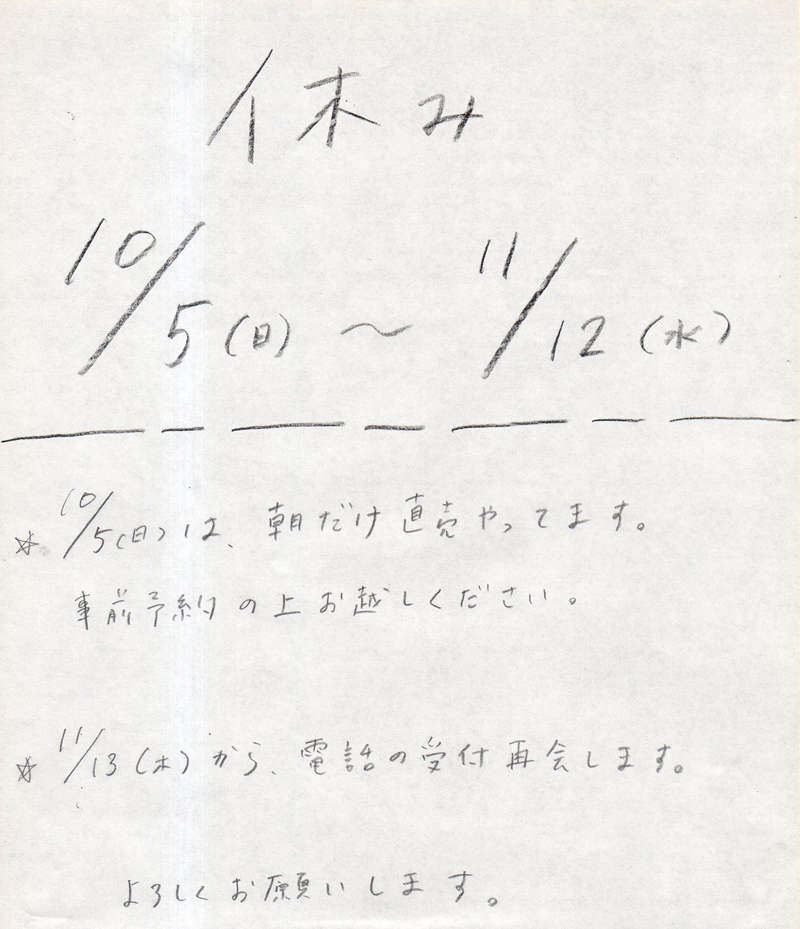 休み
10/5(日)～11/12(水)
☆10/5(日)は、朝だけ直売やってます。
事前予約の上お越しください。
☆11/13(木)から、電話の受付再会します。
よろしくお願いします。